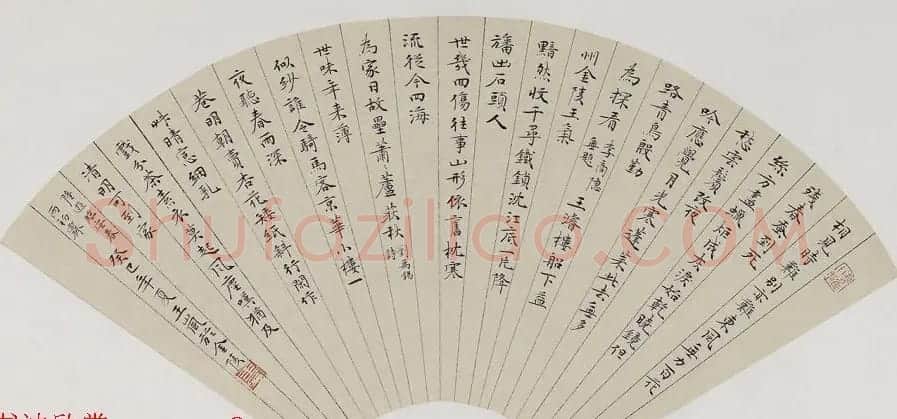 相見時難別亦難東風無力百花
殘春蠶到死
絲方盡蠟炬成灰淚始乾曉鏡但
愁雲鬢改夜
吟應覺月光寒蓬萊此去無多
路青鳥殷勤
為探看 李商隱無題 王濬樓船下益
州金陵王氣
黯然收千尋鐵鎖沈江底一片降
旛出石頭人
世幾回傷往事山形依舊枕寒
流從今四海
為家日故壘蕭蘆荻秋 劉禹錫詩
世味年來薄
似紗誰令騎馬客京華小樓一
夜聽春雨深
巷明朝賣杏花矮紙斜行閑作
艸晴窓細乳
戲分茶素衣莫起風塵嘆猶及
清明可到家
陸游臨安春
雨初霽 癸巳年夏王 於金陵
Shufaziliao.com